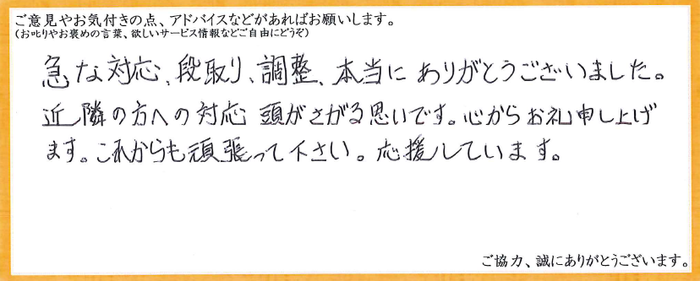 ご意見やお気付きの点、アドバイスなどがあればお願いします。
(お叱りやお褒めの言葉、欲しいサービス情報などご自由にどうぞ)
急な対応、段取り、調整、本当に ありがとうございました。
近隣の方への対応 頭がさがる思いです。心からお礼申し上げ
ます。これからも頑張って下さい。応援しています。
ご協力、誠にありがとうございます。